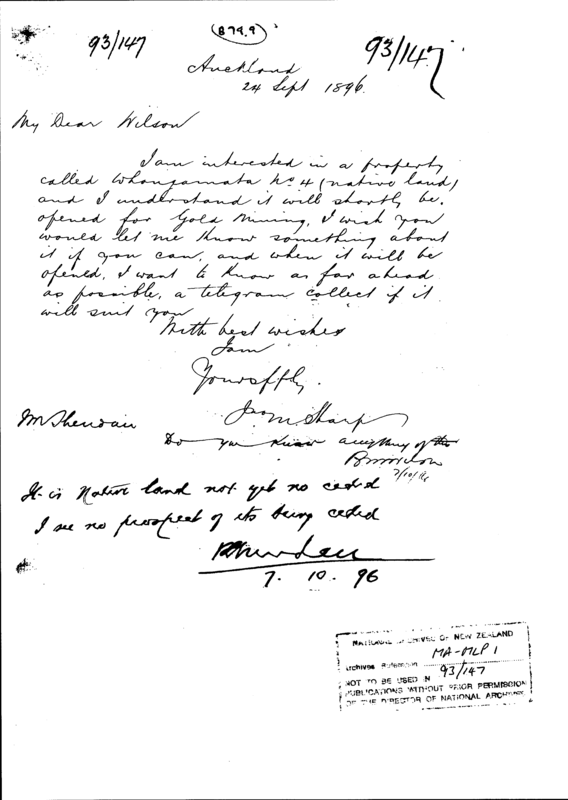 (B79.9)
93/147
93/147
Auckland
24 Sept 1896.
My Dear Wilson
I am interested in a property
called Whangamata No 4 (native land)
and I understand it will shortly be
opened for Gold Mining, I wish you
would let me know something about
it if you can, and when it will be
opened. I want to know as far ahead
as possible, a telegram collect if it
will suit you
With best wishes
I am
Yours ffly.
Jno M. Sharp
Mr Sheridan
Do you know anything of this
7/10/96
It is Native land not yet ceded
I see no prospect of its being ceded
7. 10. 96
NATIONAL ARCHIVES OF NEW ZEALAND
MA-MLP 1
Archives Reference 93/147
NOT TO BE USED IN
PUBLICATIONS WITHOUT PRIOR PERMISSION
OF THE DIRECTOR OF NATIONAL ARCHIVES